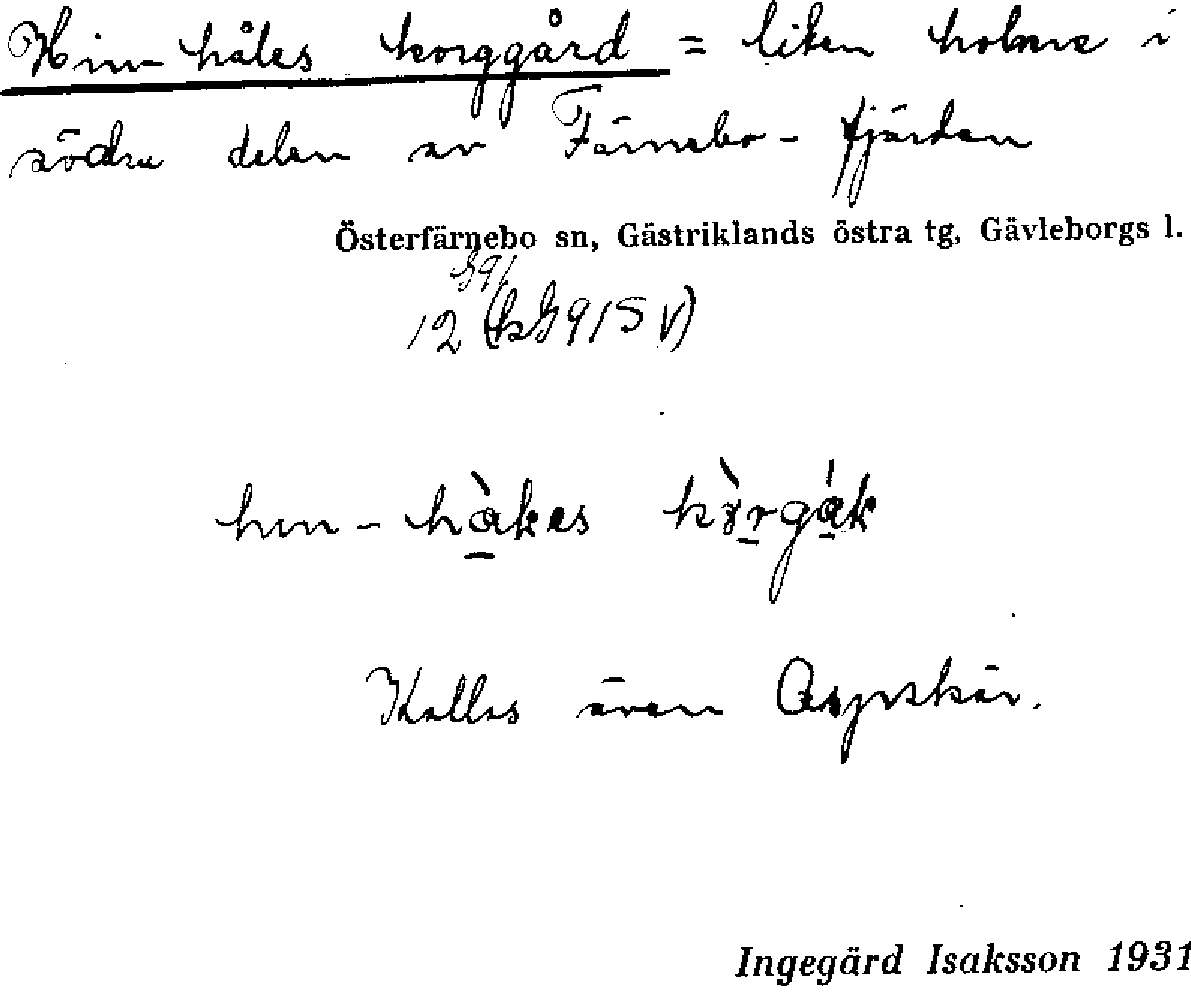 Hin-håkes korggård = liten holme i
södra delen av Färnebo-fjärden
Österfärnebo sn, Gästriklands östra tg, Gävleborgs l.
12 G9/5 V)
hin-håkes
Kallas även Aspskär.
Ingegärd Isaksson 1931